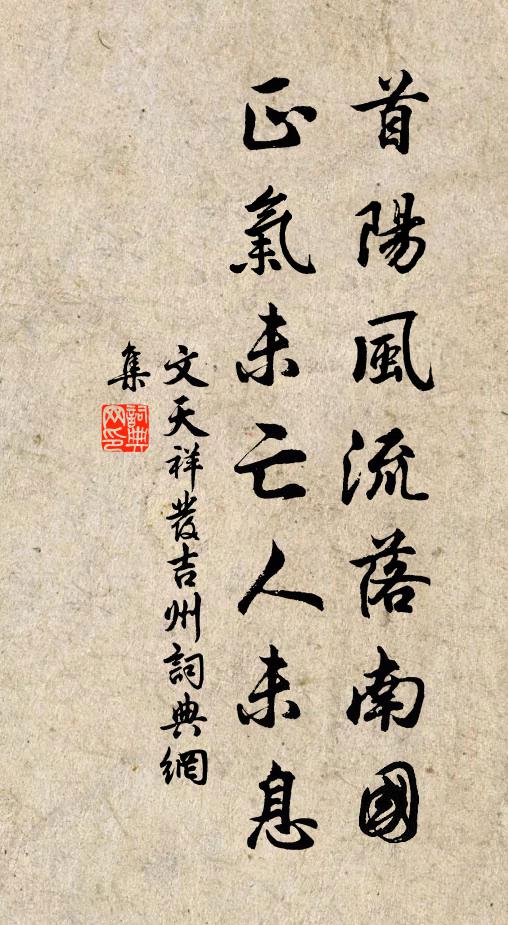 首陽風流落南國
正氣未亡人未息
文天祥發吉州詞典網
集
詞典網印